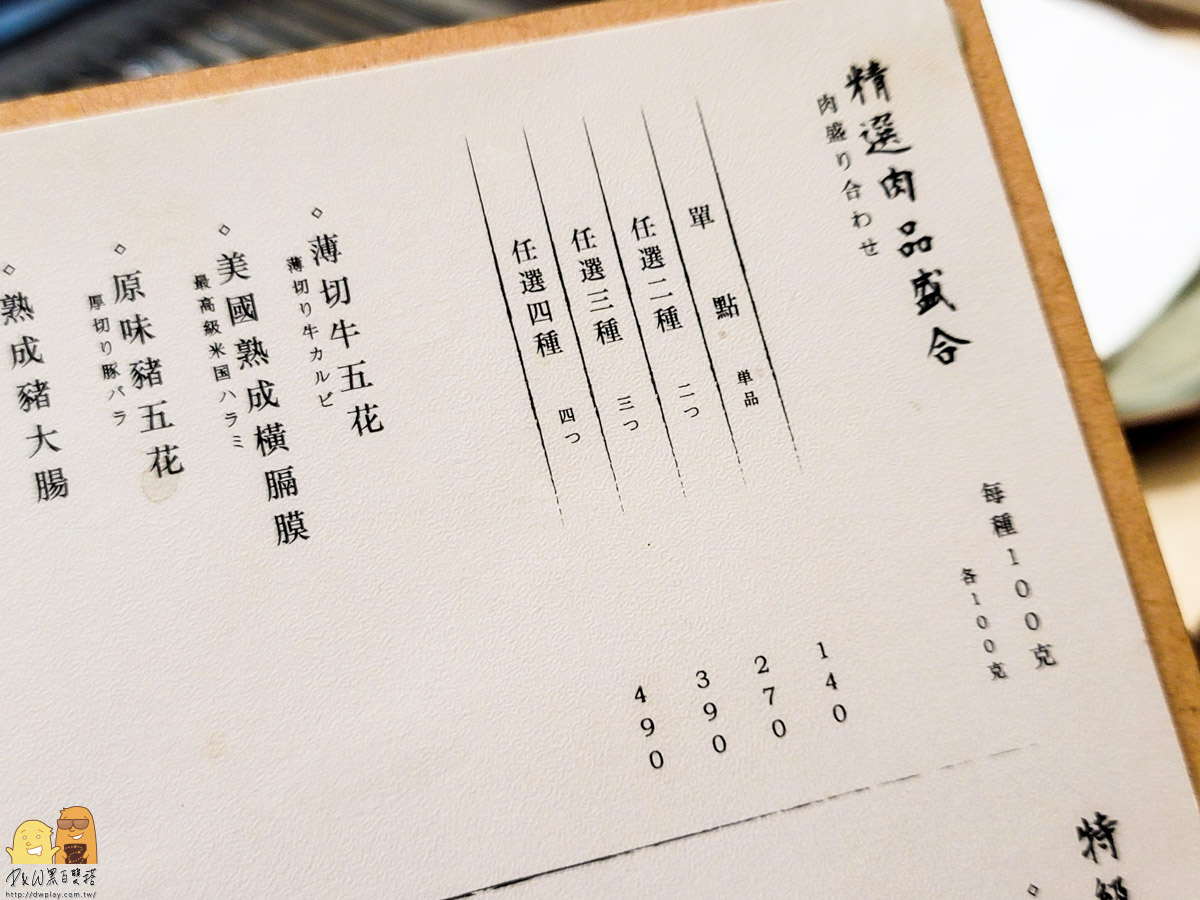 精選肉品盛合
肉盛り合わせ
每種100克
各100克
單點 単品 140
任選二種 二つ 270
任選三種 三つ 390
任選四種 四つ 490
◇薄切牛五花
薄切り牛カルビ
◇美國熟成橫膈膜
最高級米国ハラミ
◇原味豬五花
厚切り豚バラ
◇熟成豬大腸
特級
◇
D&W黑白雙搭
http://dwplay.com.tw/